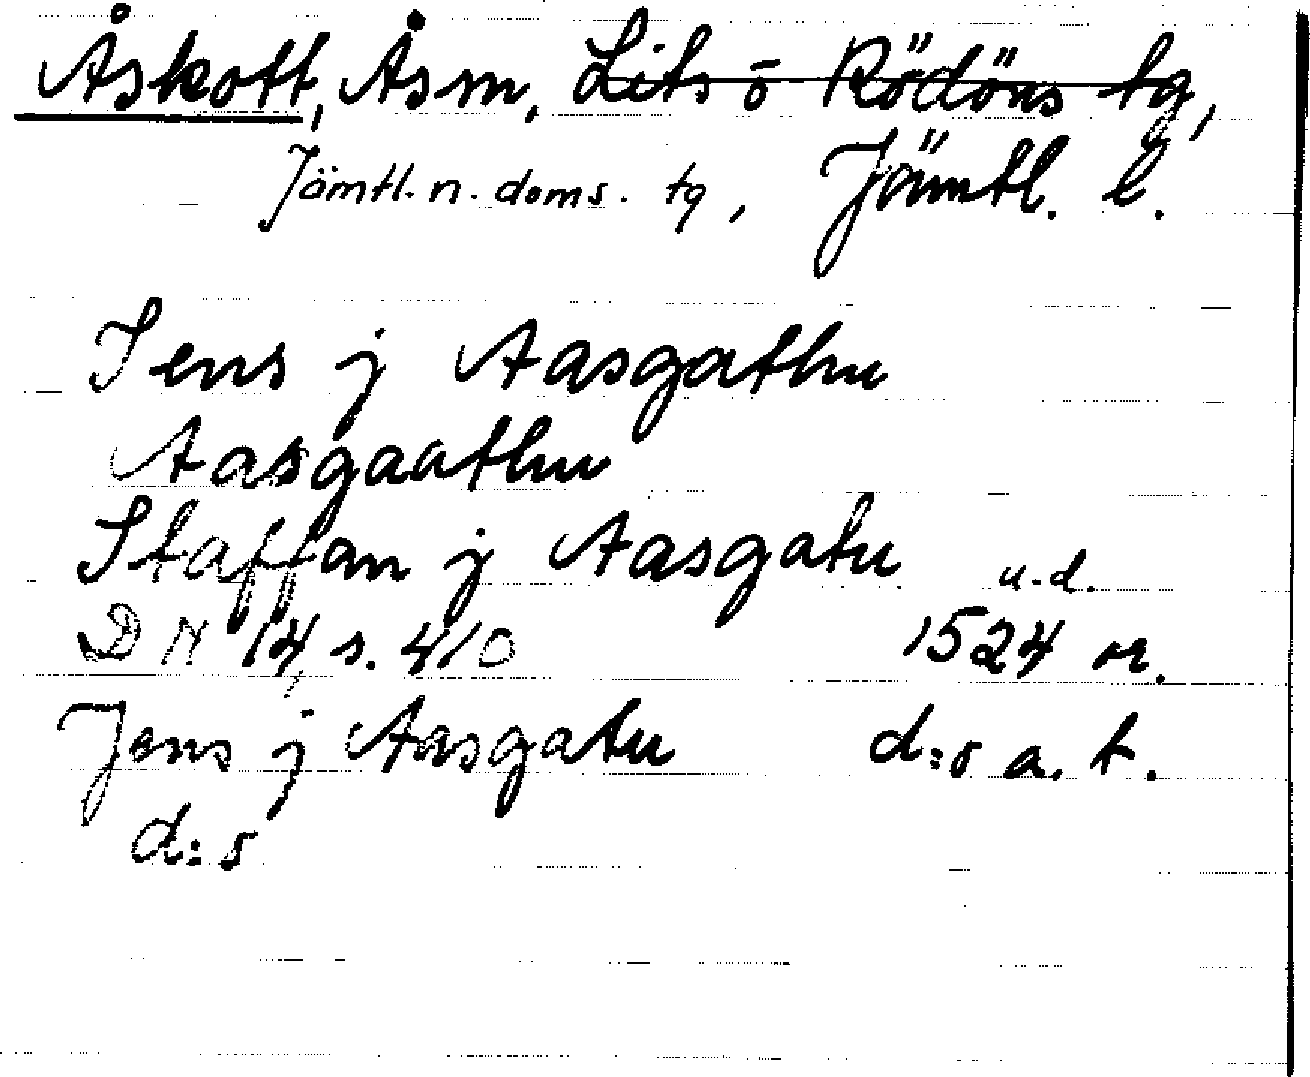 Åskott, Åsm, Lits ō Rödöns tg,
Jämtl. n. doms. tg, Jämtl. l.
Jens j Aasgathu
Aasgaathu
Staffan j Aasgatu u.d.
DN 14, s. 410 1524 or.
Jens j Aasgatu d:o a. t.
d:o